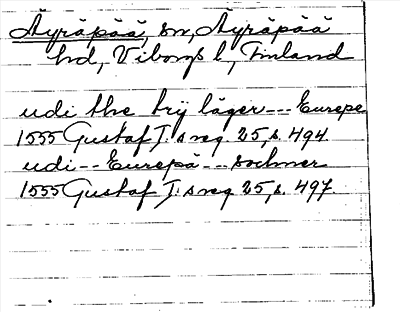 Äyräpää, sn, Äyräpää
hd, Viborgs l, Finland
udi the trij läger --- Eurepe
1555 Gustaf I:s reg. 25, s. 494.
udi -- Eurepä --- sochner
1555 Gustaf I:s reg 25, s. 497.